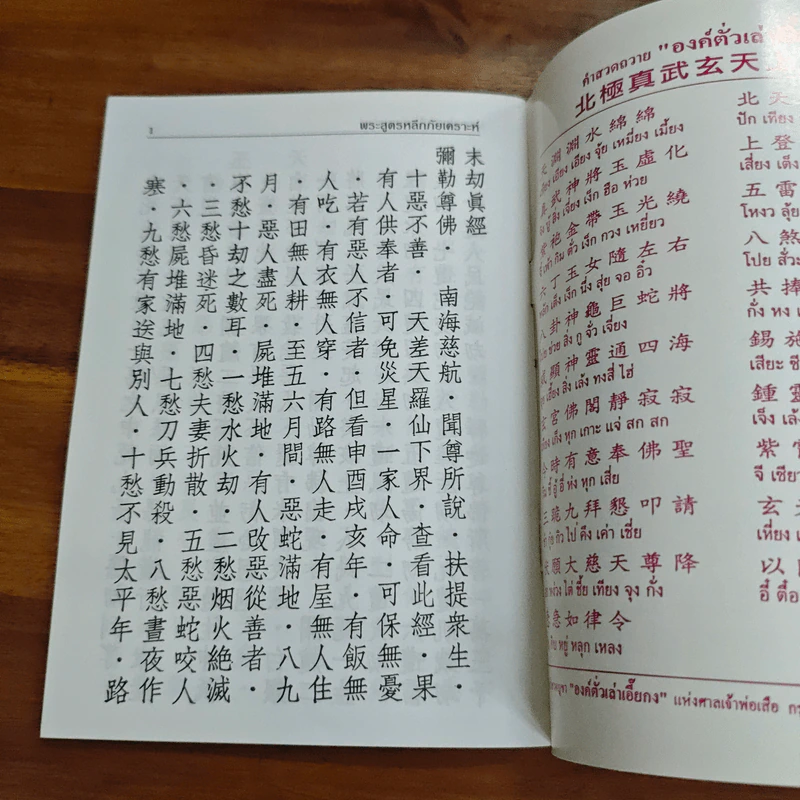 1
พระสูตรหลีกภัยเคราะห์
末劫眞經
彌勒尊佛．南海慈航．聞尊所說．扶提衆生．
十惡不善．天差天羅仙下界．查看此經．果
有人供奉者．可免災星．一家人命．可保無憂
．若有惡人不信者．但看申酉戌亥年．有飯無
人吃．有衣無人穿．有路無人走．有屋無人住
．有田無人耕．至五六月間．惡蛇滿地．八九
月．惡人盡死．屍堆滿地．有人改惡從善者．
不愁十劫之數耳．一愁水火劫．二愁烟火絶滅
．三愁昏迷死．四愁夫妻折散．五愁惡蛇咬人
．六愁屍堆滿地．七愁刀兵動殺．八愁晝夜作
寒．九愁有家送與別人．十愁不見太平年．路
คำสวดถวาย "องค์ตั่วเล่า
北極真武玄天
淵淵水綿綿
เอียง เอียง จุ้ย เหมี่ยง เมี้ยง
武神將玉虛化
บู๊ สิ่ง เจี่ยง เง็ก ฮือ ห่วย
袍金帶玉光繞
เผ้า กิม ตั่ว เง็ก กวง เหยี่ยว
六丁玉女隨左右
เต็ง เง็ก นึ่ง สุ่ย จอ อิ๋ว
八卦神龜巨蛇將
ข่วย สิ่ง กู จั่ว เจี่ยง
顯神靈通四海
เฮี้ยง สิ่ง เล้ง ทงสี่ ไฮ่
宮佛閣靜寂寂
เก็ง หุก เกาะ แจ่ สก สก
時有意奉佛聖
ซี้ อู๋ อี่ ห่ง หุก เสี่ย
三跪九拜懇叩請
กุ่ย กิ๋ว ไป่ คึง เค่า เชี่ย
願大慈天尊降
หง่วง ไต่ ชื้อ เทียง จุง กั่ง
急如律令
กิบ หยู่ หลุก เหลง
北天
ปัก เทียง
上登
เสี่ยง เต็ง
五雷
โหงว ลุ้ย
八煞
โปย สั่วะ
共捧
กั่ง หง
錫施
เสียะ ซี
鍾靈
เจ็ง เล้ง
紫
จี เซียว
玄天
เหี่ยง เ
以
อี๋ ตื้อ
"องค์ตั่วเล่าเอี๊ยกง" แห่งศาลเจ้าพ่อเสือ กร